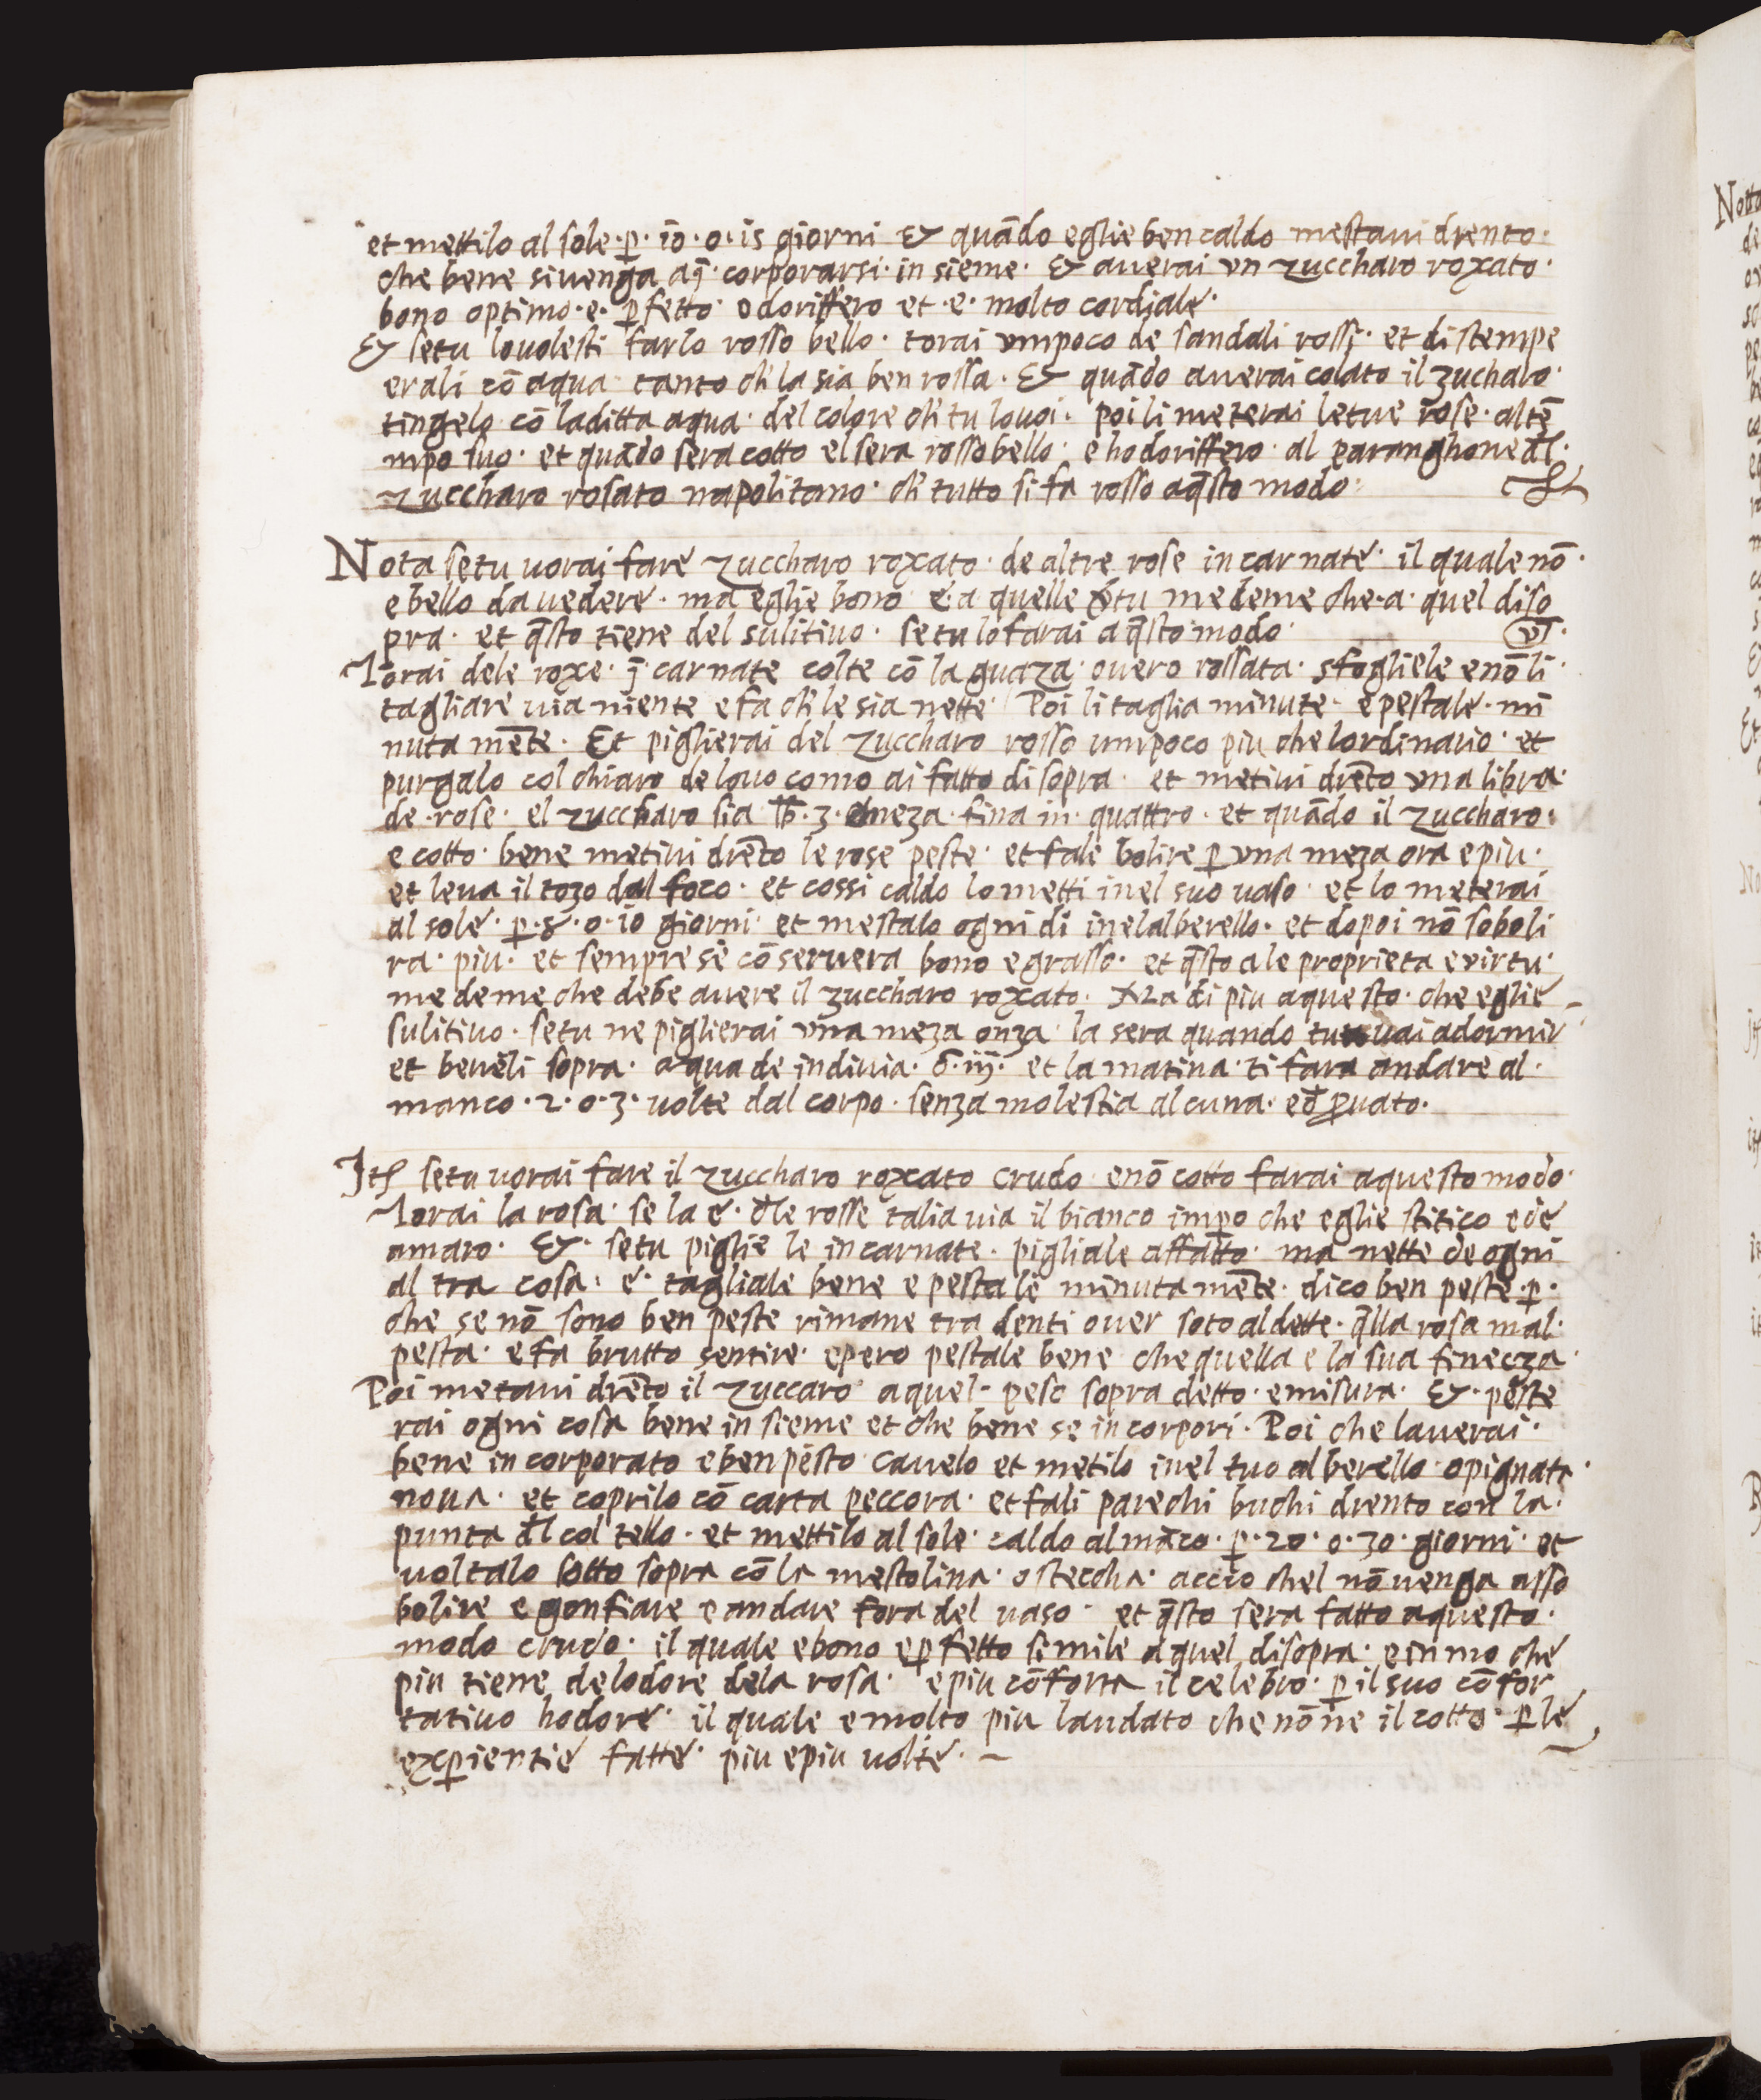 et mettilo al sole · p̱ · io · o · is giorni Et quādo eglie ben caldo mestaui drento ·
che bene siuenga aq̄ · corporarsi · in sieme · Et auerai vn zuccharo roxato ·
bono optimo · e · p̱fetto · odoriffero et · e · molto cordiale ·
Et setu louolesti farlo rosso bello · torai vmpoco de sandali rossi · et distempe
erali cō aqua tanto ch' la sia ben rossa · Et quādo auerai colato il zucharo ·
tingelo cō laditta aqua · del colore ch' tu louoi · poi li meterai letue rose · altē
mpo suo · et quādo sera cotto el sera rosso bello · e hodoriffero · al paranghone dl̄ ·
zuccharo rosato napolitano · ch' tutto si fa rosso aq̄sto modo ·
Nota setu uorai fare zuccharo roxato · de altre rose in carnate · il quale nō ·
e bello da uedere · ma eglie bono e · a quelle v̄tu medeme che · a · quel diso
pra · et q̄sto tiene del sulitiuo · se tu lo farai a q̄sto modo ·
Torai dele roxe · ī · carnate colte cō la guaza · ouero rossata · sfogliele e nō li ·
tagliare uia niente e fa ch' le sia nette Poi li taglia minute · e pestale · mi
nuta mēte · Et piglierai del zuccharo rosso umpoco piu che lordinario · et
purgalo col chiaro de louo como ai fatto di sopra · et metiui drēto vna libra ·
de · rose · el zuccharo sia lb̄ · 3 · e meza · fina in · quattro · et quādo il zuccharo ·
e cotto · bene metiui drēto le rose peste · et fale bolire p̱ vna meza ora e piu ·
et leua il tozo dal foco · et cossi caldo lo metti inel suo uaso · et lo meterai
al sole · p̱ · 8 · o · io giorni · et mestalo ogni di inel alberello · et dopoi nō soboli
ra · piu · et sempre se cōseruera bono e grasso · et q̄sto a le proprieta e virtu ·
medeme che debe auere il zuccharo roxato · Ma di piu aquesto · che eglie
sulitiuo · setu ne piglierai vna meza onza la sera quando tu uai adormir
et beueli sopra · aqua de indiuia · ō · iij · et la matina · ti fara andare al ·
manco · 2 · o · 3 · uolte dal corpo · senza molestia alcuna · ed̄ p̱uato ·
Itē setu uorai fare il zuccharo roxato crudo enō cotto farai aquesto modo ·
Torai la rosa · se la e · d̄le rosse talia uia il bianco imp̱o che eglie stitico e de
amaro · Et · setu piglie le in carnate · pigliale affatto · ma nette de ogni
al tra cosa · e · tagliale bene e pestale minuta mēte · dico ben peste · p̱ ·
che se nō sono ben peste rimane tra denti ouer soto al dette · q̄lla rosa mal ·
pesta · e fa brutto sentire · epero pestale bene che quella e la sua finecza ·
Poi metaui drēto il zuccaro aquel · peso sopra detto · e misura · Et · peste
rai ogni cosa bene in sieme et che bene se in corpori · Poi che lauerai ·
bene in corporato e ben pesto cauelo et metilo inel tuo alberello o pignata
noua · et coprilo cō carta peccora · et fali parechi buchi drento con la ·
punta d̄l col tello · et mettilo al sole · caldo al māco · p̱ · 20 · o · 30 · giorni · et
uoltalo sotto sopra cō la mestolina · o steccha · accio chel nō uenga asso
bolire e gonfiare e andare fora del uaso · et q̄sto sera fatto aquesto ·
modo crudo · il quale e bono e p̱fetto simile aquel disopra · e inmo che
piu tiene delodore dela rosa · e piu cōforta il celebro · p̱ il suo cōfor
tatiuo hodore · il quale e molto piu laudato che nō ne il cotto · p̱ le
exp̱ientie fatte · piu e piu uolte · ~